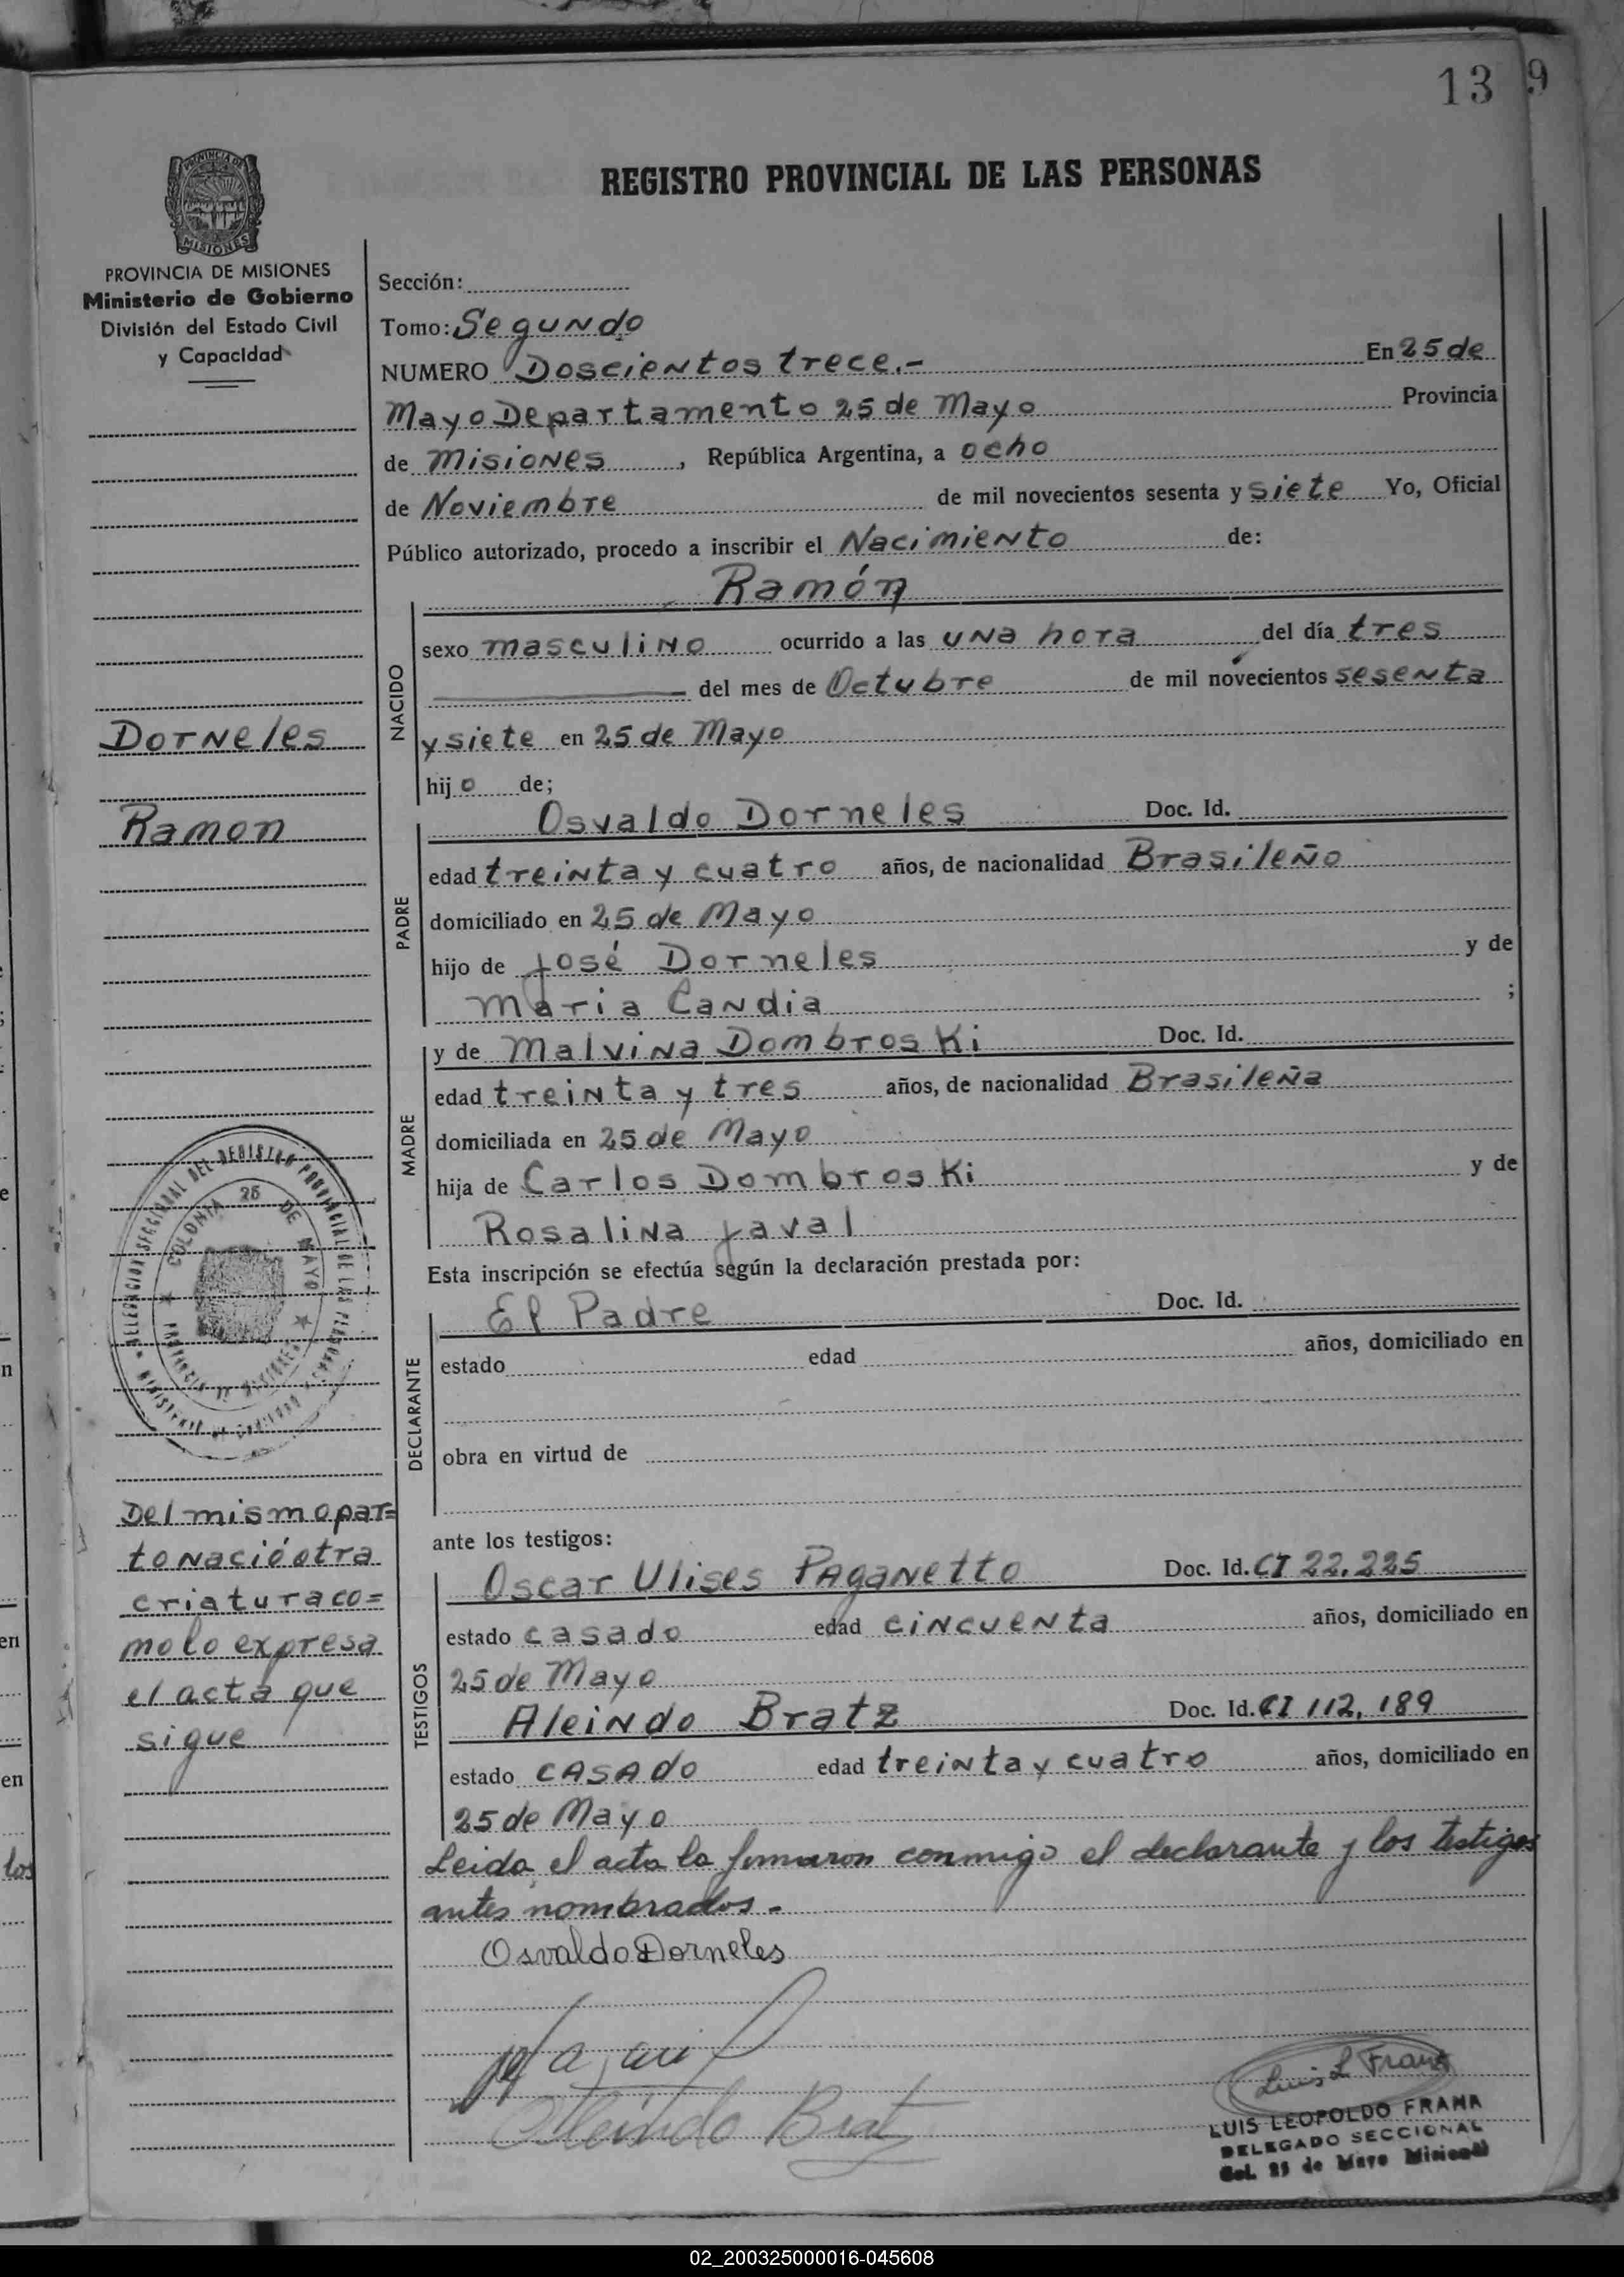 13 9
PROVINCIA DE
MISIONES
REGISTRO PROVINCIAL DE LAS PERSONAS
PROVINCIA DE MISIONES
Ministerio de Gobierno
División del Estado Civil
y Capacidad
Sección:
Tomo: Segundo
NUMERO Doscientos trece.- En 25 de
Mayo Departamento 25 de Mayo Provincia
de Misiones, República Argentina, a ocho
de Noviembre de mil novecientos sesenta y siete Yo, Oficial
Público autorizado, procedo a inscribir el Nacimiento de:
NACIDO
Ramón
sexo masculino ocurrido a las una hora del día tres
del mes de Octubre de mil novecientos sesenta
y siete en 25 de Mayo
hijo de;
Dorneles
Ramon
PADRE
Osvaldo Dorneles Doc. Id.
edad treinta y cuatro años, de nacionalidad Brasileño
domiciliado en 25 de Mayo
hijo de José Dorneles y de
Maria Candia ;
MADRE
y de Malvina Dombroski Doc. Id.
edad treinta y tres años, de nacionalidad Brasileña
domiciliada en 25 de Mayo
hija de Carlos Dombroski y de
Rosalina Javal
Esta inscripción se efectúa según la declaración prestada por:
DECLARANTE
El Padre Doc. Id.
estado edad años, domiciliado en
obra en virtud de
DELEGACION SECCIONAL DEL REGISTRO PROVINCIAL DE LAS PERSONAS
COLONIA 25 DE MAYO
PROVINCIA DE MISIONES
MINISTERIO DE GOBIERNO
Del mismo par=
to nació otra
criatura co=
mo lo expresa
el acta que
sigue
ante los testigos:
TESTIGOS
Oscar Ulises Paganetto Doc. Id. CI 22.225
estado casado edad cincuenta años, domiciliado en
25 de Mayo
Aleindo Bratz Doc. Id. CI 112.189
estado casado edad treinta y cuatro años, domiciliado en
25 de Mayo
Leida el acta la firmaron conmigo el declarante y los testigos
antes nombrados.-
Osvaldo Dorneles
Aleindo Bratz
Luis L Frama
LUIS LEOPOLDO FRAMA
DELEGADO SECCIONAL
Col. 25 de Mayo Misiones
los
en
en
02_200325000016-045608